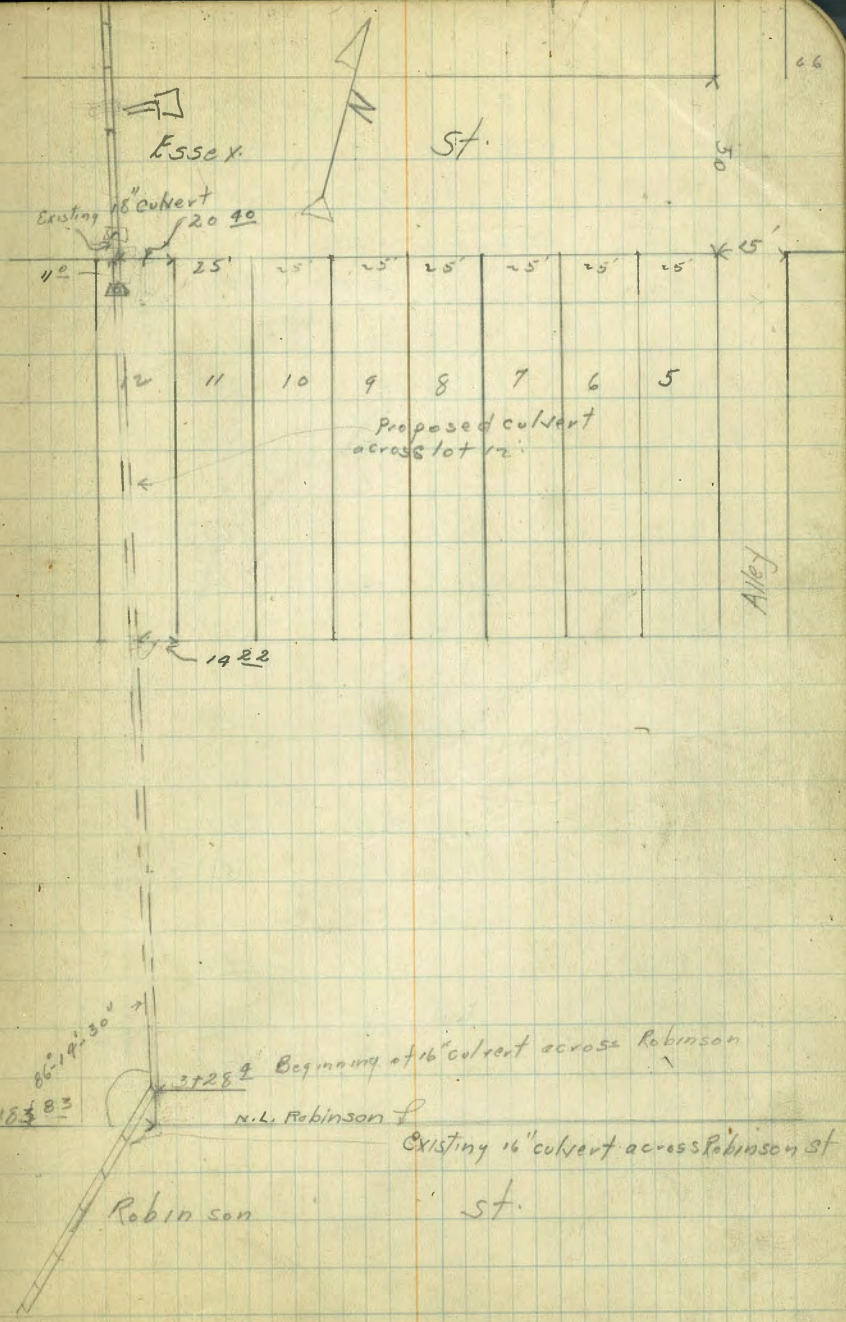 66
N
Essex. St.
50
Existing 18" culvert
20 40
25'
25' 25' 25' 25' 25' 25' 25'
12 11 10 9 8 7 6 5
Proposed culvert
across lot 12
Alley
14 22
86°-14'-30"
3+28 4 Beginning of 16" culvert across Robinson
183 83
N.L. Robinson
Existing 16" culvert across Robinson st
Robinson St.